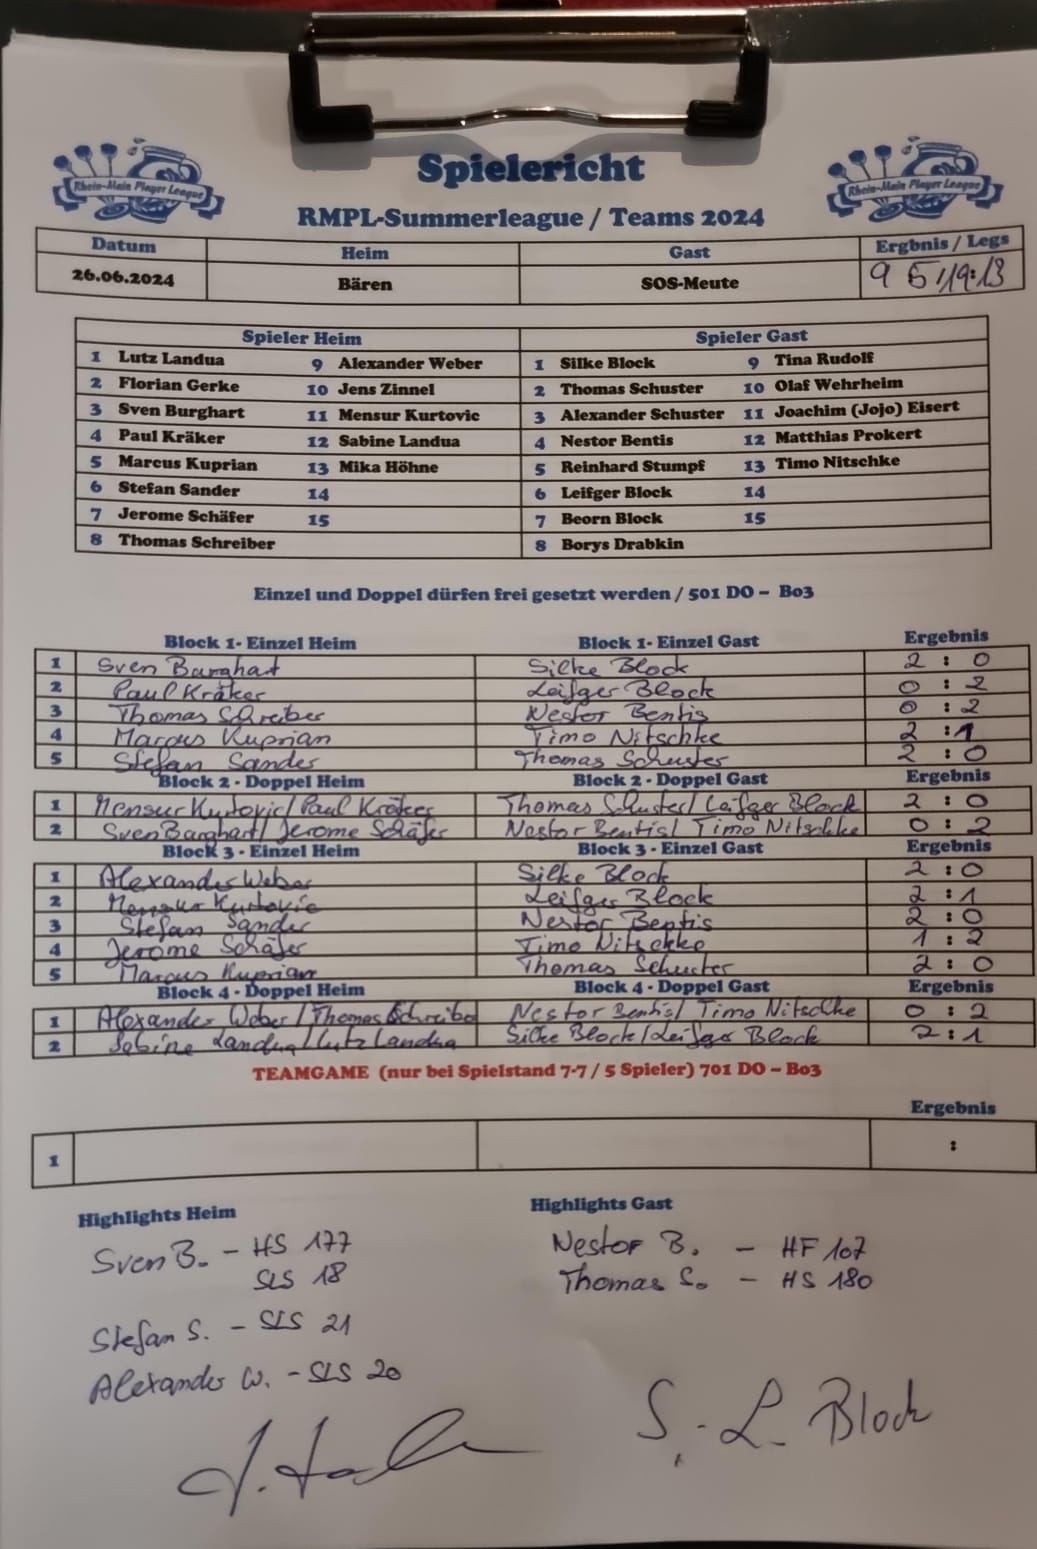 Rhein-Main Player League
Rhein-Main Player League
Spielericht
RMPL-Summerleague / Teams 2024
Datum Heim Gast Ergbnis / Legs
26.06.2024 Bären SOS-Meute 9 5 / 19:13
Spieler Heim Spieler Gast
1 Lutz Landua 9 Alexander Weber 1 Silke Block 9 Tina Rudolf
2 Florian Gerke 10 Jens Zinnel 2 Thomas Schuster 10 Olaf Wehrheim
3 Sven Burghart 11 Mensur Kurtovic 3 Alexander Schuster 11 Joachim (Jojo) Eisert
4 Paul Kräker 12 Sabine Landua 4 Nestor Bentis 12 Matthias Prokert
5 Marcus Kuprian 13 Mika Höhne 5 Reinhard Stumpf 13 Timo Nitschke
6 Stefan Sander 14 6 Leifger Block 14
7 Jerome Schäfer 15 7 Beorn Block 15
8 Thomas Schreiber 8 Borys Drabkin
Einzel und Doppel dürfen frei gesetzt werden / 501 DO – Bo3
Block 1- Einzel Heim Block 1- Einzel Gast Ergebnis
1 Sven Burghart Silke Block 2 : 0
2 Paul Kräker Leifger Block 0 : 2
3 Thomas Schreiber Nestor Bentis 0 : 2
4 Marcus Kuprian Timo Nitschke 2 : 1
5 Stefan Sander Thomas Schuster 2 : 0
Block 2 - Doppel Heim Block 2 - Doppel Gast Ergebnis
1 Mensur Kurtovic / Paul Kräker Thomas Schuster / Leifger Block 2 : 0
2 Sven Burghart / Jerome Schäfer Nestor Bentis / Timo Nitschke 0 : 2
Block 3 - Einzel Heim Block 3 - Einzel Gast Ergebnis
1 Alexander Weber Silke Block 2 : 0
2 Kurtovic Leifger Block 2 : 1
3 Stefan Sander Nestor Bentis 2 : 0
4 Jerome Schäfer Timo Nitschke 1 : 2
5 Marcus Kuprian Thomas Schuster 2 : 0
Block 4 - Doppel Heim Block 4 - Doppel Gast Ergebnis
1 Alexander Weber / Thomas Schreiber Nestor Bentis / Timo Nitschke 0 : 2
2 Sabine Landua / Lutz Landua Silke Block / Leifger Block 2 : 1
TEAMGAME (nur bei Spielstand 7-7 / 5 Spieler) 701 DO – Bo3
Ergebnis
1 :
Highlights Heim Highlights Gast
Sven B. - HS 177 Nestor B. - HF 107
SLS 18 Thomas S. - HS 180
Stefan S. - SLS 21
Alexander W. - SLS 20
S.-L. Block